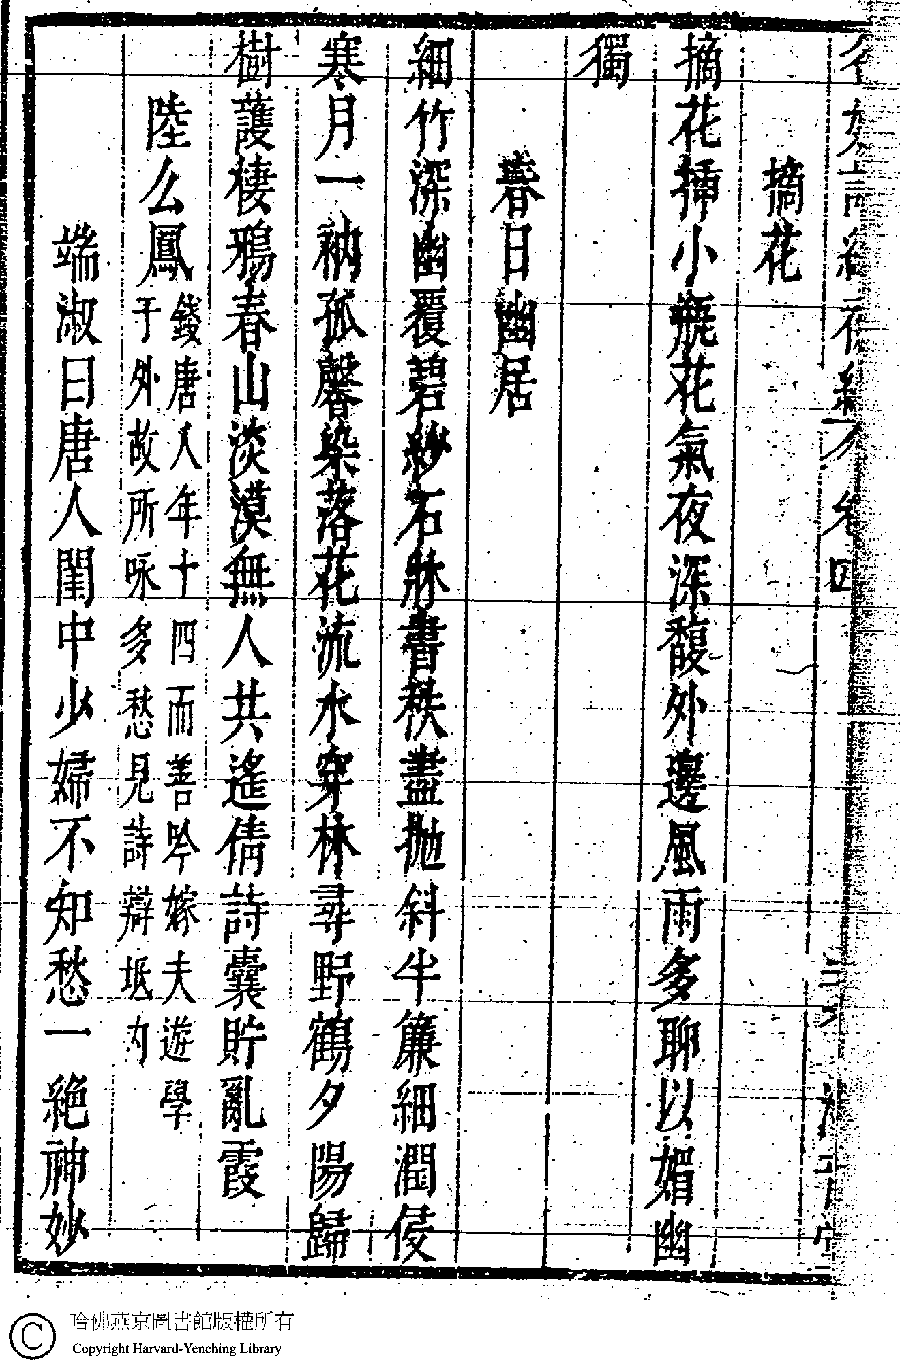 摘花
摘花揷小甁花氣夜深馥外邊風雨多聊以媚幽
獨
春日幽居
細竹深幽覆碧紗石牀書秩盡拋斜半簾細潤侵
寒月一衲孤馨染落花流水穿林尋野鶴夕陽歸
樹護棲鴉春山淡漠無人共遙倩詩囊貯亂霞
陸么鳳
錢唐人年十四而善吟嫁夫遊學
于外故所咏多愁見詩辯坻內
端淑曰唐人閨中少婦不知愁一絕神妙
哈佛燕京圖書館版權所有
Copyright Harvard-Yenching Library